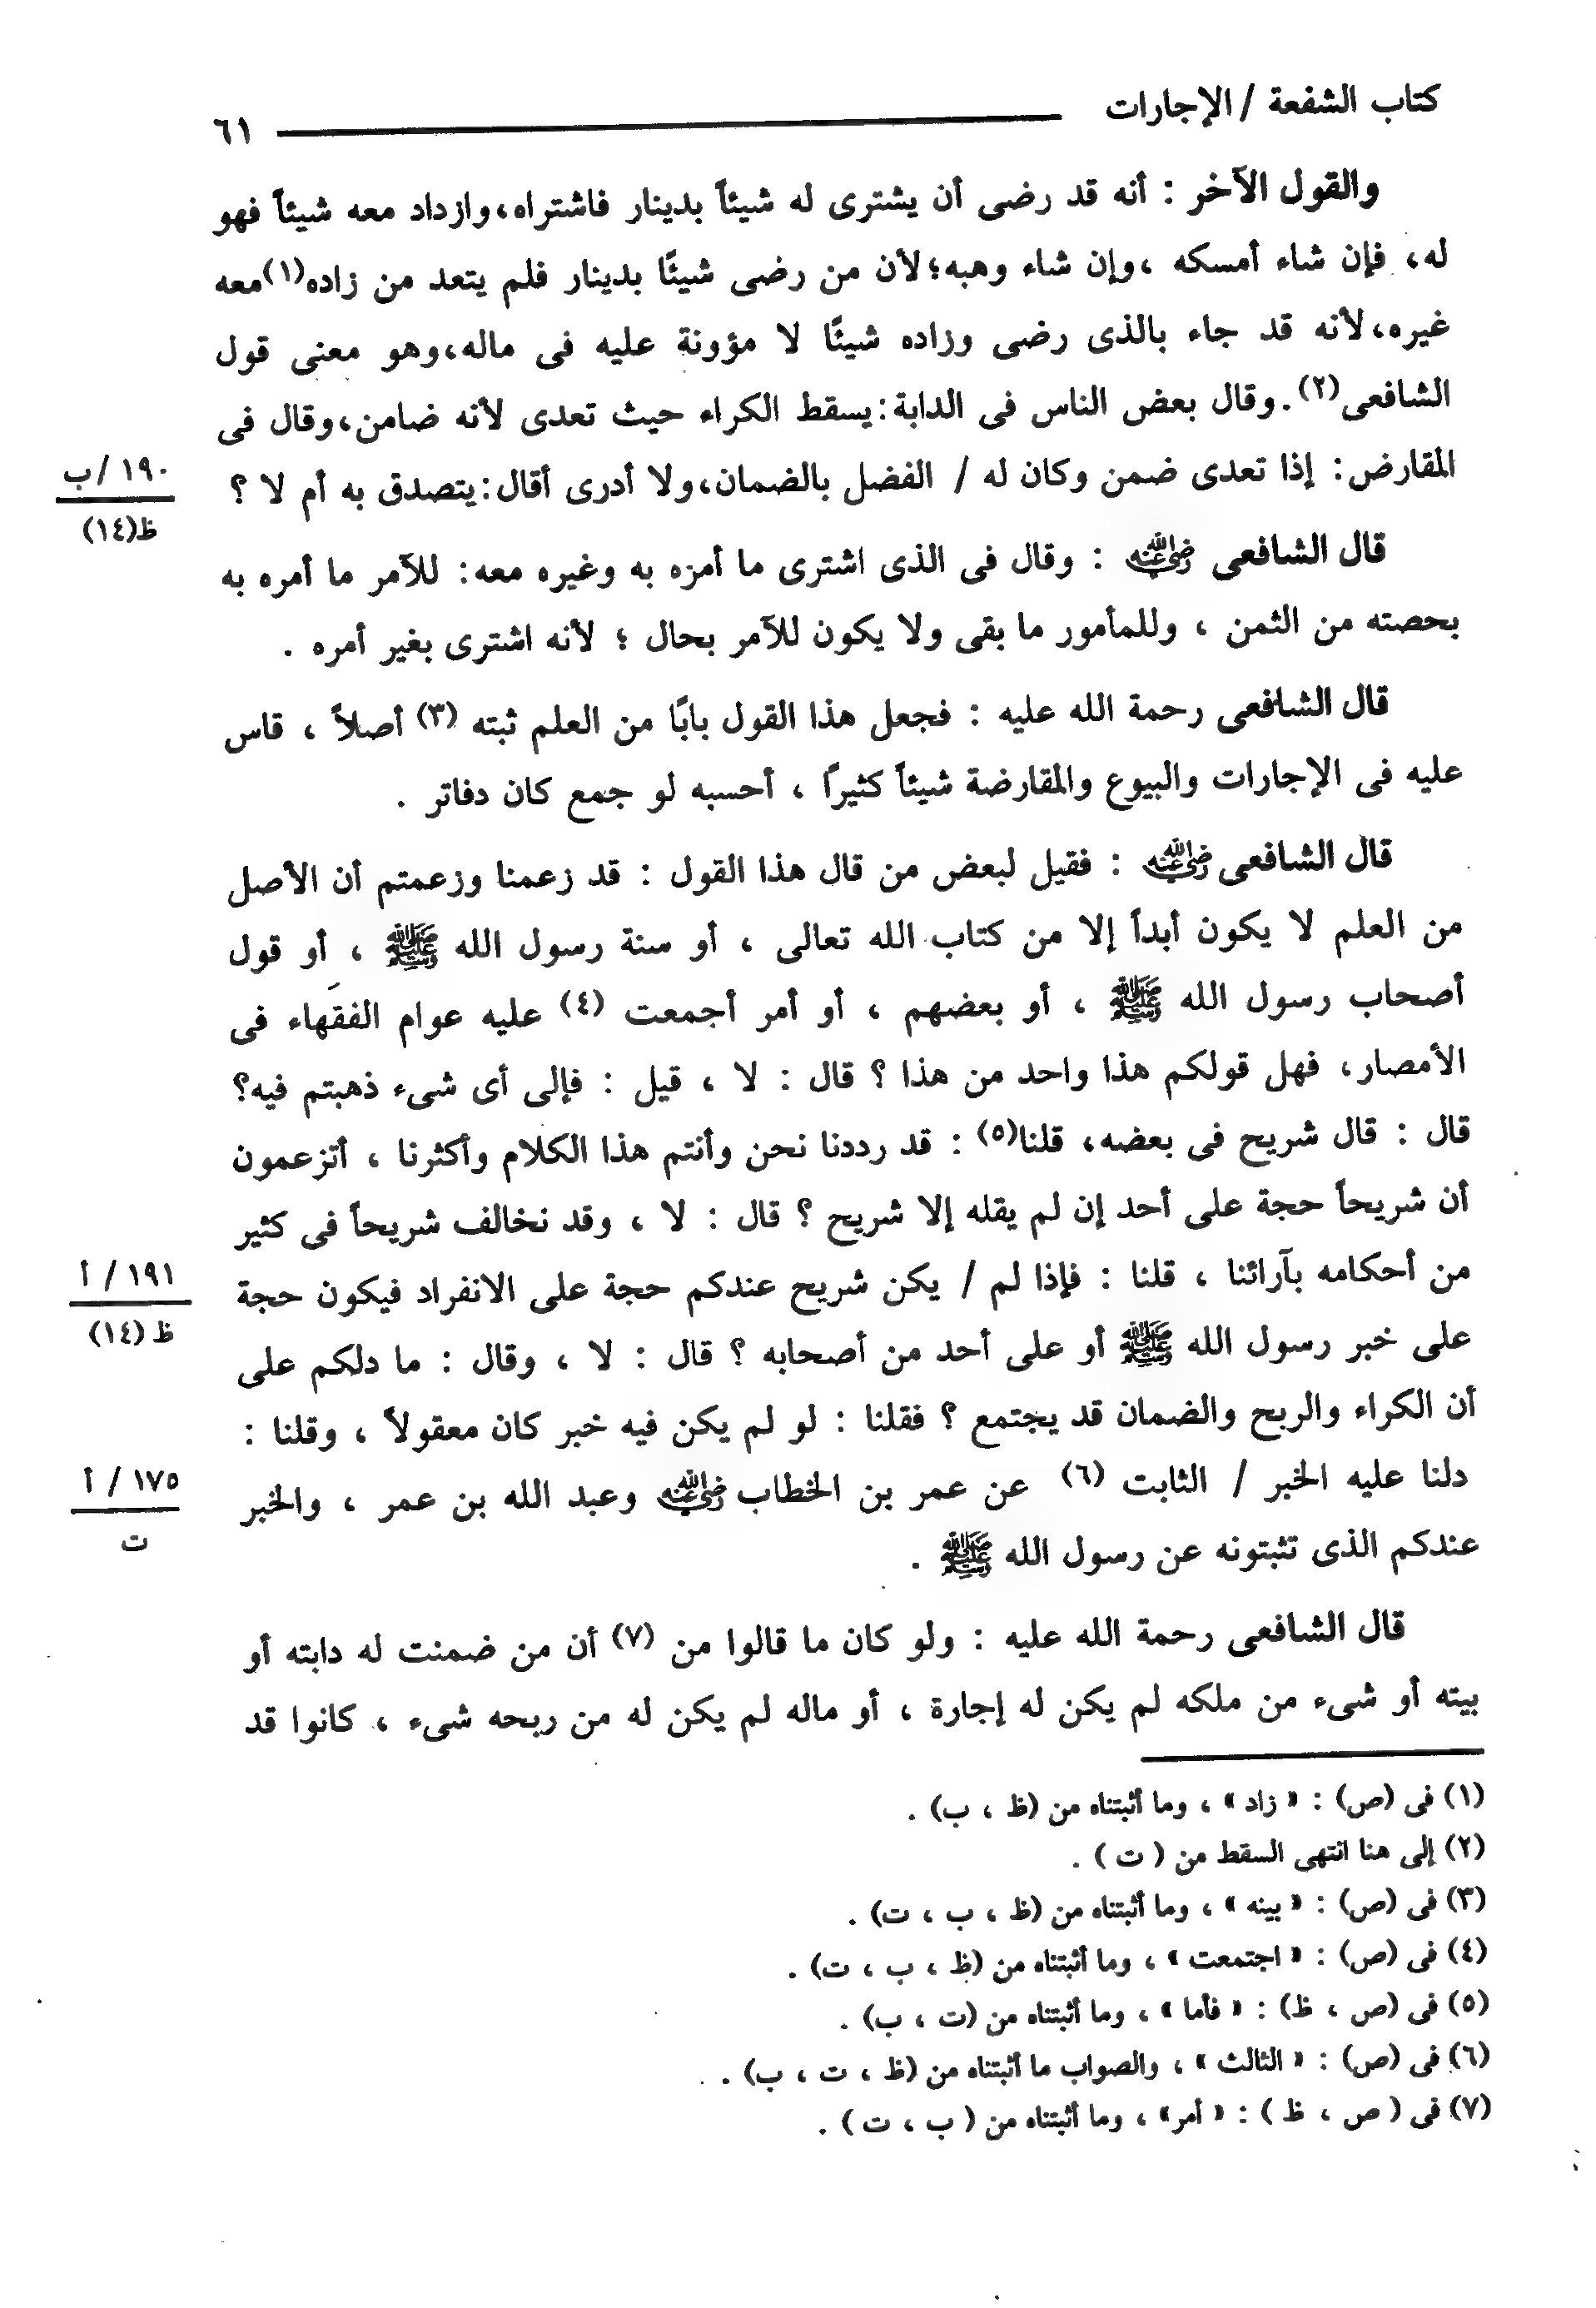 كتاب الشفعة / الإجارات ٦١
والقول الآخر : أنه قد رضى أن يشترى له شيئاً بدينار فاشتراه، وازداد معه شيئاً فهو
له، فإن شاء أمسكه ،وإن شاء وهبه؛لأن من رضى شيئًا بدينار فلم يتعد من زاده(١)معه
غيره،لأنه قد جاء بالذى رضى وزاده شيئًا لا مؤونة عليه فى ماله،وهو معنى قول
الشافعى(٢).وقال بعض الناس فى الدابة:يسقط الكراء حيث تعدى لأنه ضامن،وقال فى
المقارض: إذا تعدى ضمن وكان له / الفضل بالضمان،ولا أدرى أقال:يتصدق به أم لا ؟
١٩٠ /ب
ظ(١٤)
قال الشافعى رضي الله عنه : وقال فى الذى اشترى ما أمره به وغيره معه: للآمر ما أمره به
بحصته من الثمن ، وللمأمور ما بقى ولا يكون للآمر بحال ؛ لأنه اشترى بغير أمره .
قال الشافعى رحمة الله عليه : فجعل هذا القول بابًا من العلم ثبته (٣) أصلاً ، قاس
عليه فى الإجارات والبيوع والمقارضة شيئاً كثيرًا ، أحسبه لو جمع كان دفاتر .
قال الشافعى رضي الله عنه : فقيل لبعض من قال هذا القول : قد زعمنا وزعمتم أن الأصل
من العلم لا يكون أبداً إلا من كتاب الله تعالى ، أو سنة رسول الله ﷺ ، أو قول
أصحاب رسول الله ﷺ ، أو بعضهم ، أو أمر أجمعت (٤) عليه عوام الفقهاء فى
الأمصار، فهل قولكم هذا واحد من هذا ؟ قال : لا ، قيل : فإلى أى شىء ذهبتم فيه؟
قال : قال شريح فى بعضه، قلنا(٥) : قد رددنا نحن وأنتم هذا الكلام وأكثرنا ، أتزعمون
أن شريحاً حجة على أحد إن لم يقله إلا شريح ؟ قال : لا ، وقد نخالف شريحاً فى كثير
من أحكامه بآرائنا ، قلنا : فإذا لم / يكن شريح عندكم حجة على الانفراد فيكون حجة
١٩١ / أ
ظ (١٤)
على خبر رسول الله ﷺ أو على أحد من أصحابه ؟ قال : لا ، وقال : ما دلكم على
أن الكراء والربح والضمان قد يجتمع ؟ فقلنا : لو لم يكن فيه خبر كان معقولاً ، وقلنا :
دلنا عليه الخبر / الثابت (٦) عن عمر بن الخطاب رضي الله عنه وعبد الله بن عمر ، والخبر
١٧٥ / أ
ت
عندكم الذى تثبتونه عن رسول الله ﷺ .
قال الشافعى رحمة الله عليه : ولو كان ما قالوا من (٧) أن من ضمنت له دابته أو
بيته أو شىء من ملكه لم يكن له إجارة ، أو ماله لم يكن له من ربحه شىء ، كانوا قد
(١) فى (ص) : « زاد » ، وما أثبتناه من (ظ ، ب) .
(٢) إلى هنا انتهى السقط من ( ت ) .
(٣) فى (ص) : « بينه » ، وما أثبتناه من (ظ ، ب ، ت) .
(٤) فى (ص) : « اجتمعت » ، وما أثبتناه من (ظ ، ب ، ت) .
(٥) فى (ص ، ظ) : « فأما » ، وما أثبتناه من (ت ، ب) .
(٦) فى (ص) : « الثالث » ، والصواب ما أثبتناه من (ظ ، ت ، ب) .
(٧) فى ( ص ، ظ ) : « أمر» ، وما أثبتناه من ( ب ، ت ) .